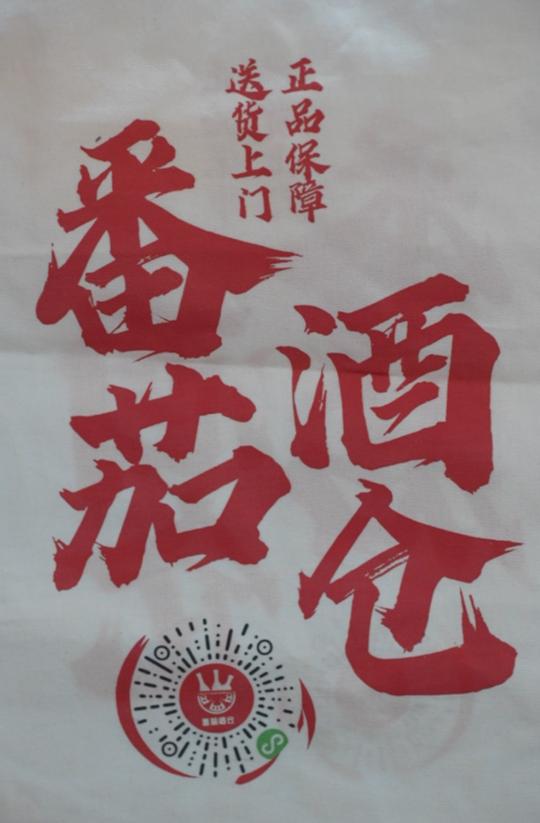 正品保障
送货上门
番茄
酒仓
番茄酒仓